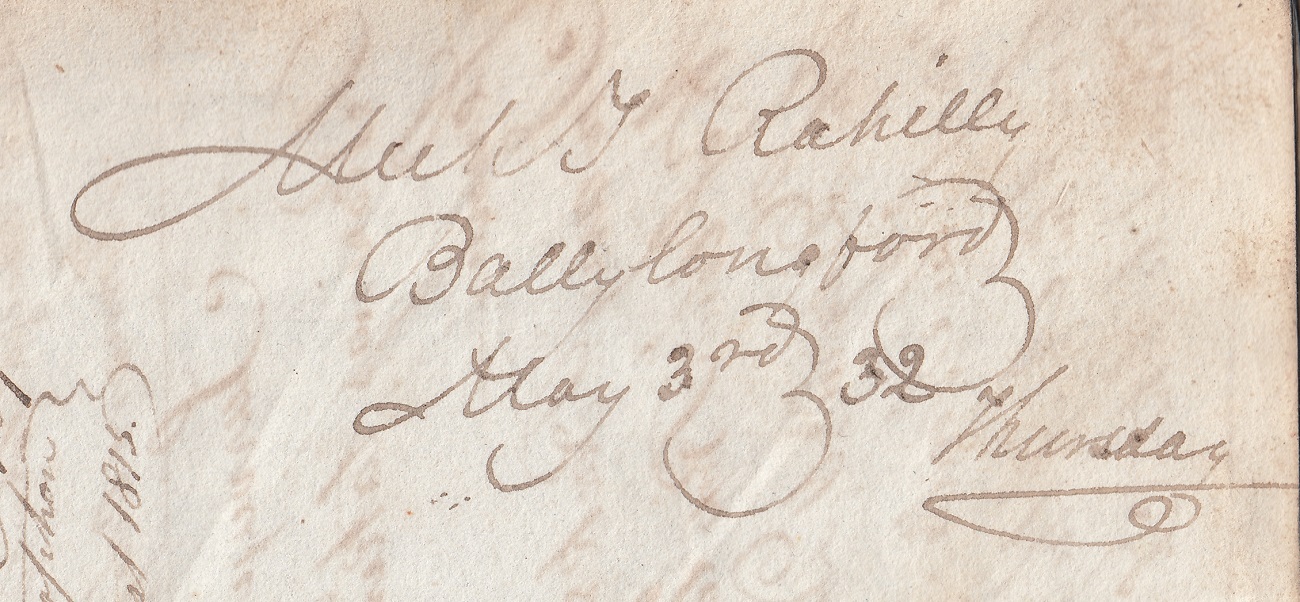 Mich J Rahilly
Ballylongford
May 3rd 32 Thursday
1815